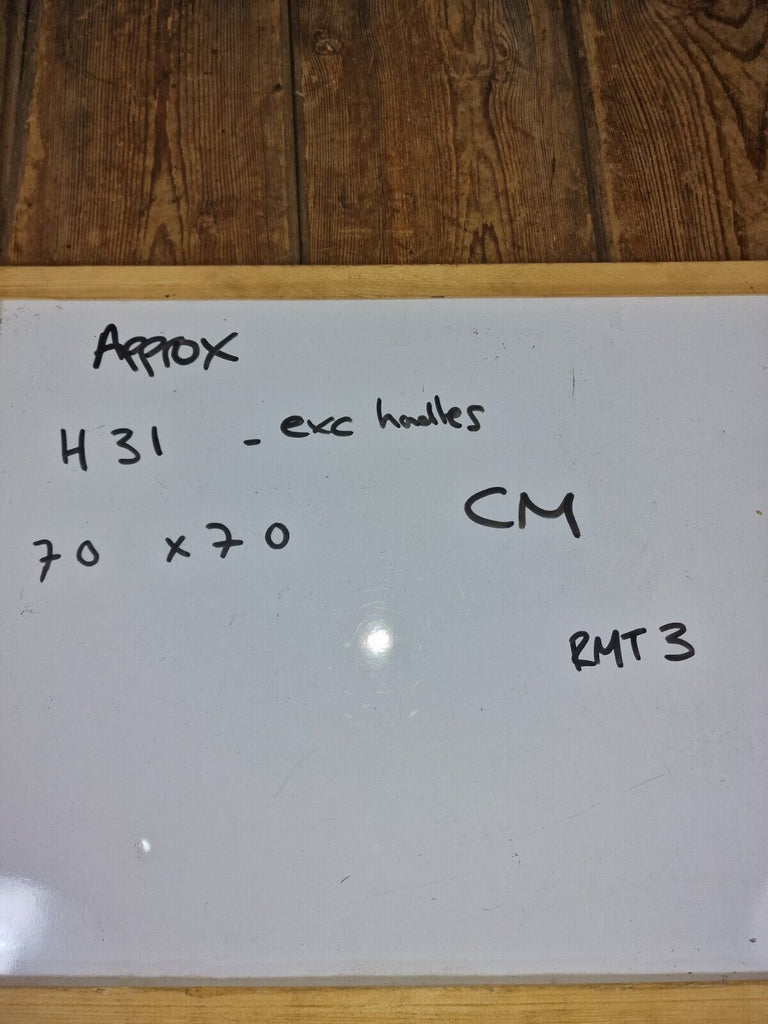 Approx
H 31 - exc handles
70 x 70
CM
RMT 3